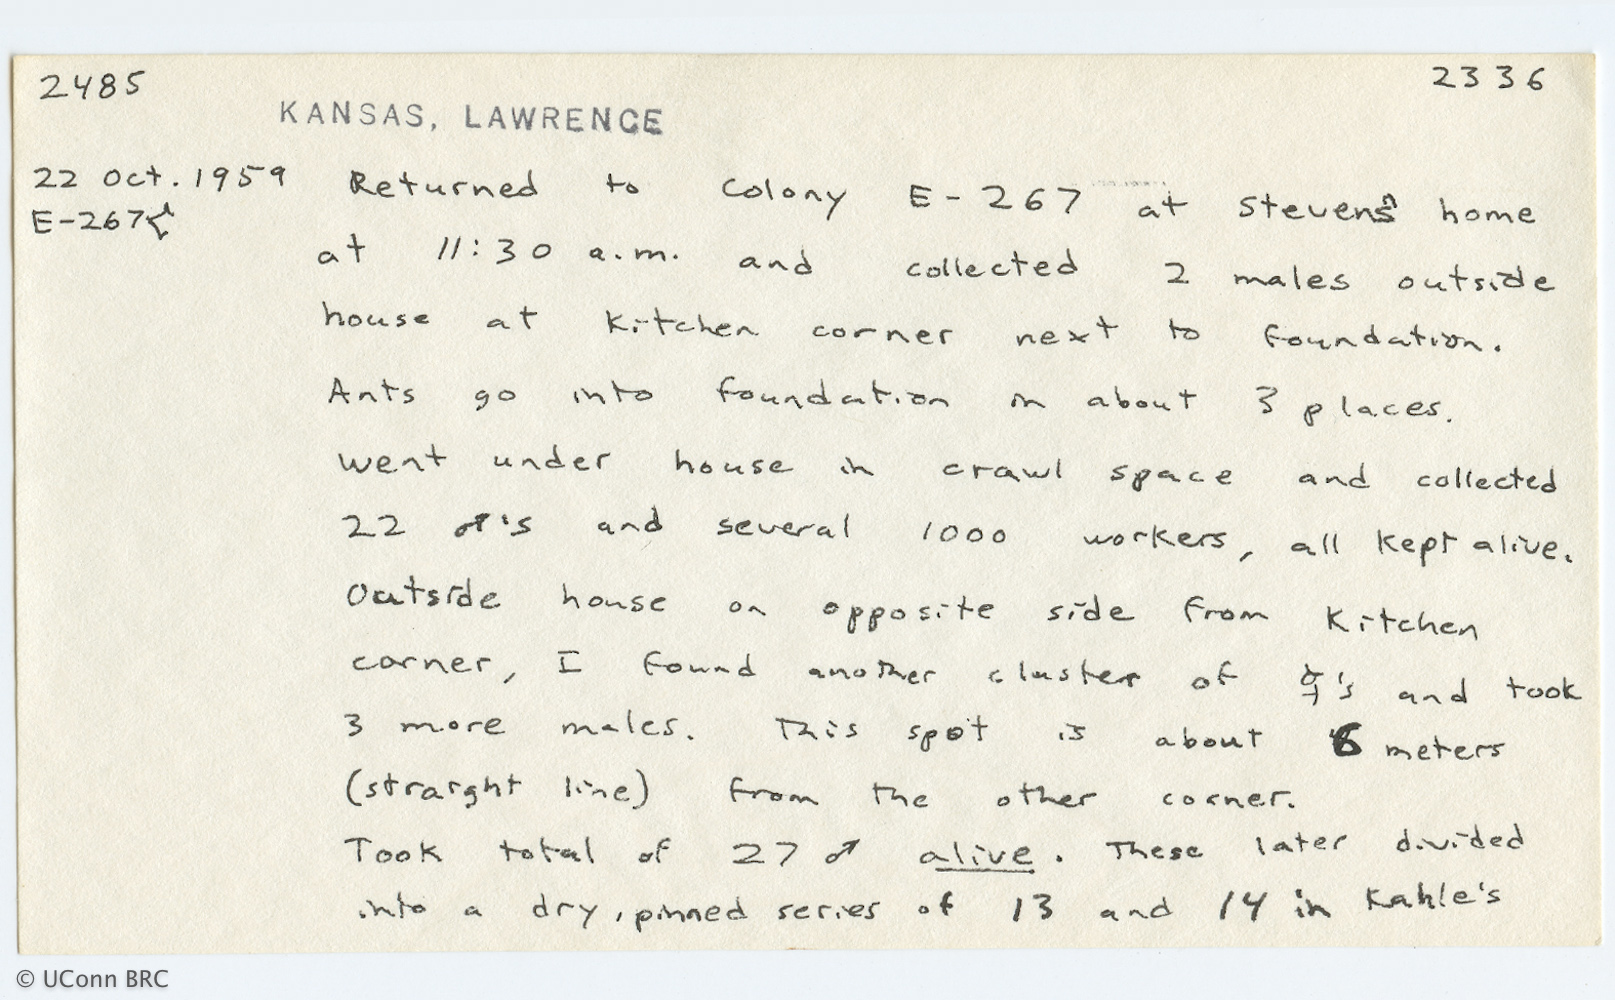 2485
2336
KANSAS, LAWRENCE
22 Oct. 1959 Returned to colony E-267 at Stevens' home
E-267
at 11:30 a.m. and collected 2 males outside
house at kitchen corner next to foundation.
Ants go into foundation in about 3 places.
Went under house in crawl space and collected
22 ♂'s and several 1000 workers, all kept alive.
Outside house on opposite side from kitchen
corner, I found another cluster of ☿'s and took
3 more males. This spot is about 6 meters
(straight line) from the other corner.
Took total of 27 ♂ alive. These later divided
into a dry, pinned series of 13 and 14 in Kahle's
© UConn BRC